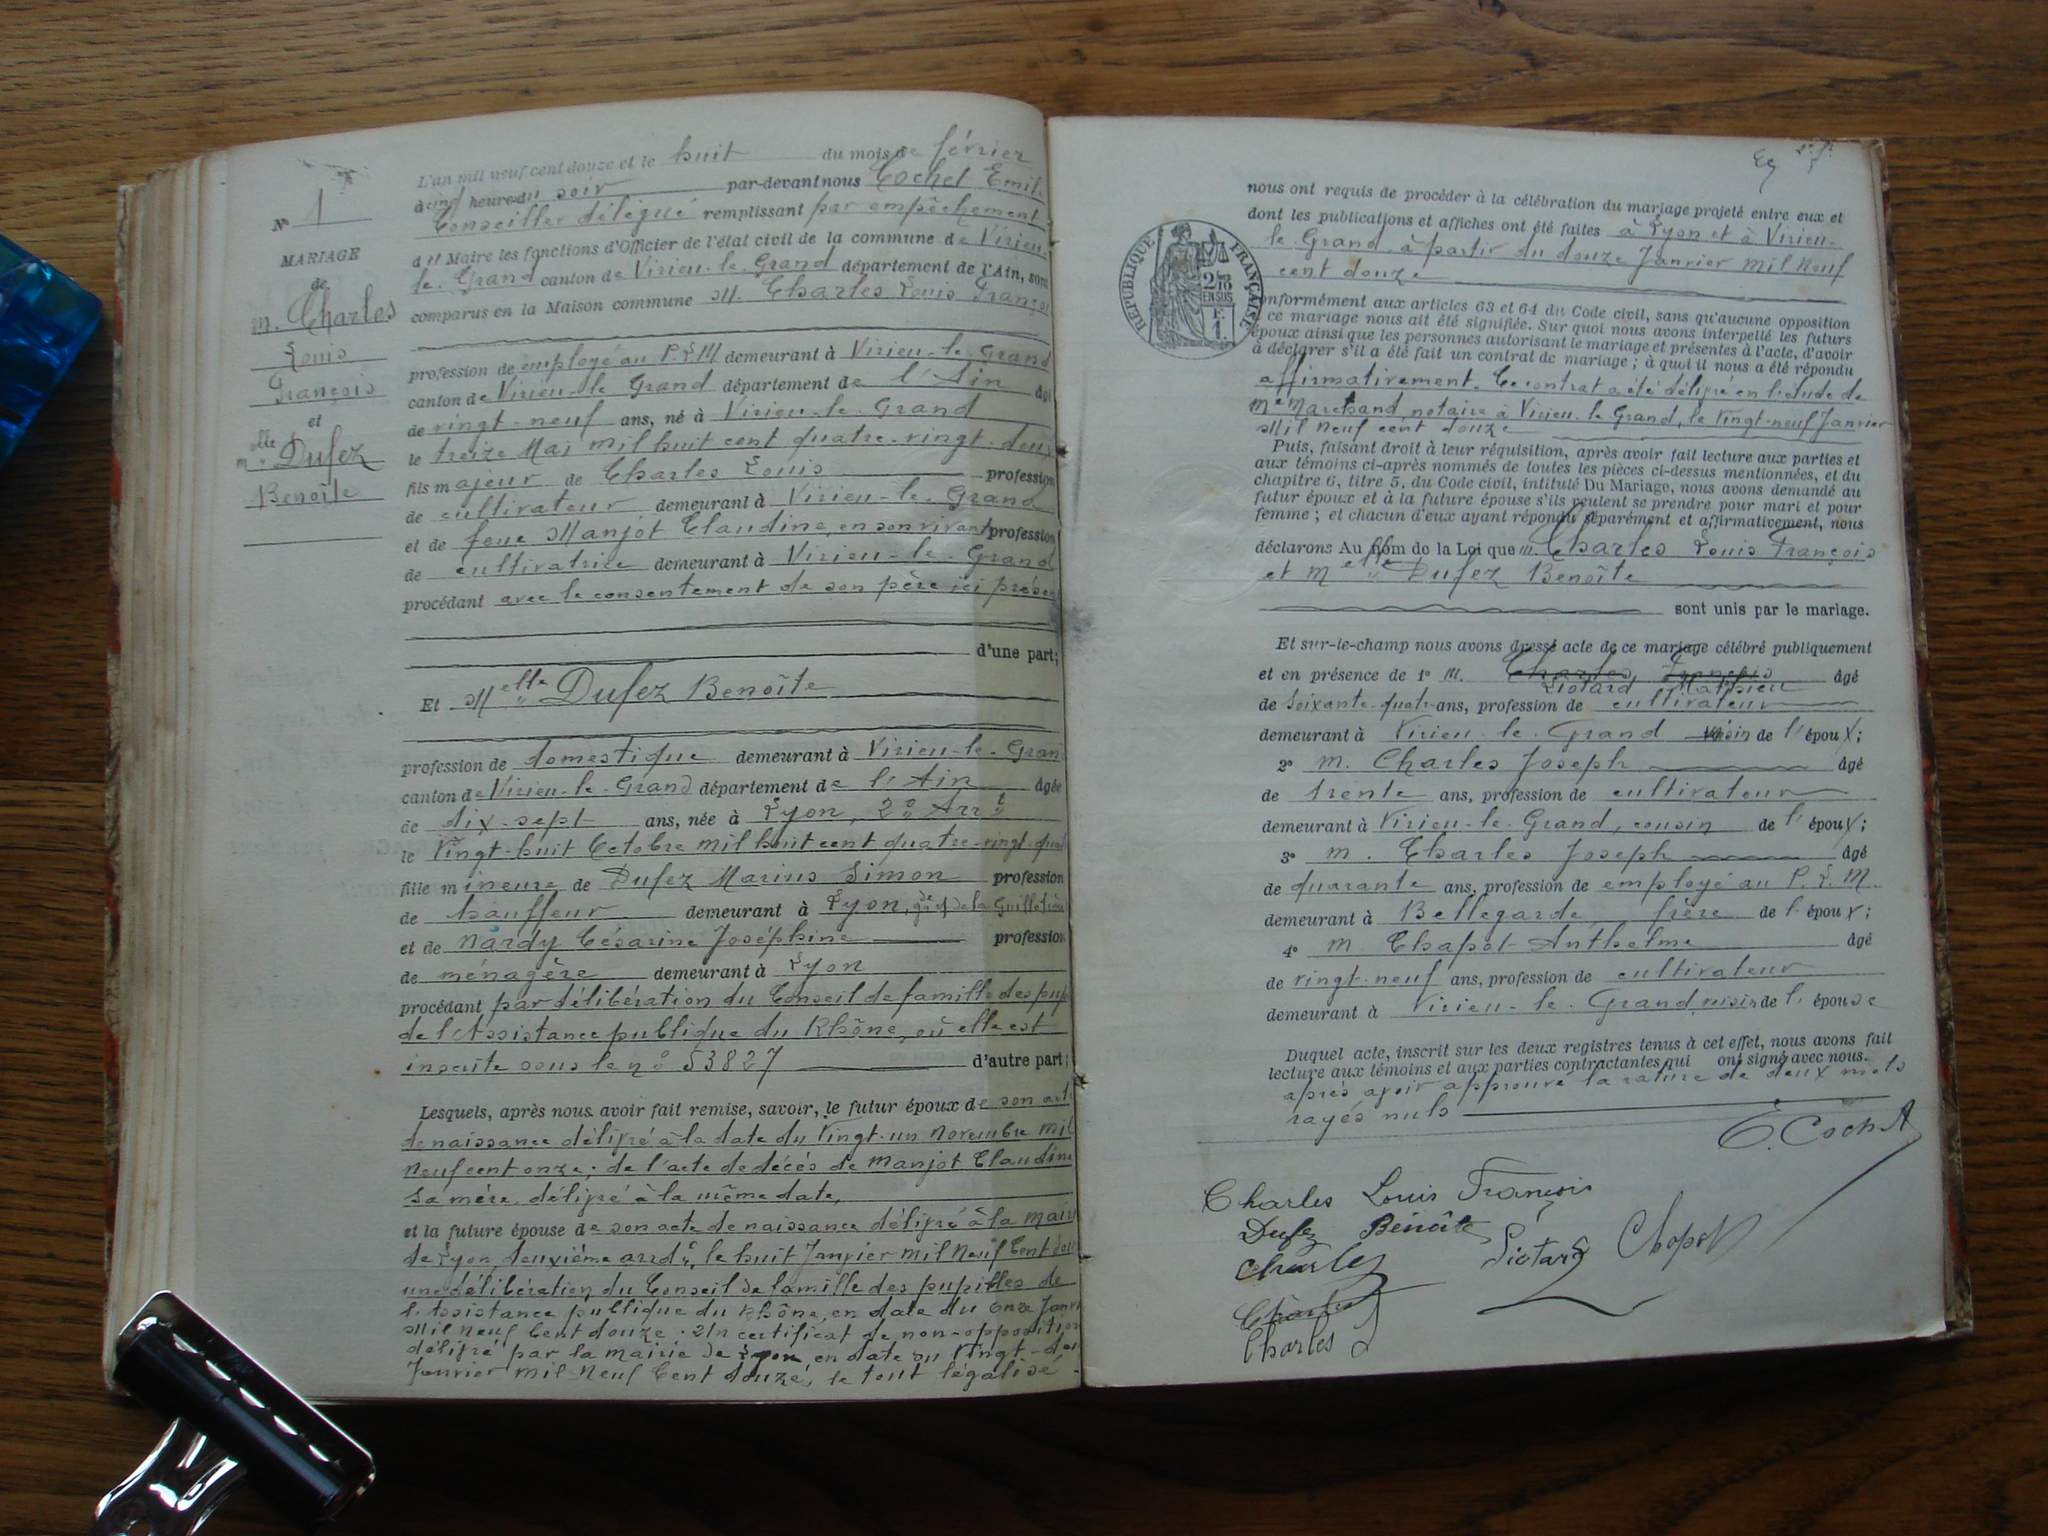 N° 1
MARIAGE
de
M. Charles
Louis
François
et
Melle Dufez
Benoîte
L'an mil neuf cent douze et le huit du mois de février
à cinq heures du soir par-devant nous Cochet Emile
Conseiller délégué remplissant par empêchement
du Maire les fonctions d'Officier de l'état civil de la commune de Virieu-
le-Grand canton de Virieu-le-Grand département de l'Ain, sont
comparus en la Maison commune M. Charles Louis François
profession de employé au P.L.M demeurant à Virieu-le-Grand
canton de Virieu-le-Grand département de l'Ain âgé
de vingt-neuf ans, né à Virieu-le-Grand
le treize Mai mil huit cent quatre-vingt-deux
fils majeur de Charles Louis profession
de cultivateur demeurant à Virieu-le-Grand
et de feue Manjot Claudine, en son vivant profession
de cultivatrice demeurant à Virieu-le-Grand
procédant avec le consentement de son père ici présent
d'une part;
Et Melle Dufez Benoîte
profession de domestique demeurant à Virieu-le-Grand
canton de Virieu-le-Grand département de l'Ain âgée
de dix-sept ans, née à Lyon, 2e Arrt
le Vingt-huit Octobre mil huit cent quatre-vingt-quat
fille mineure de Dufez Marius Simon profession
de chauffeur demeurant à Lyon, de la Guillotière
et de Nardy Césarine Joséphine profession
de ménagère demeurant à Lyon
procédant par délibération du Conseil de famille des pup
de l'Assistance publique du Rhône, où elle est
inscrite sous le n° 53827 d'autre part;
Lesquels, après nous avoir fait remise, savoir, le futur époux de son acte
de naissance délivré à la date du Vingt-un Novembre mil
neuf cent onze; de l'acte de décès de Manjot Claudine
sa mère, délivré à la même date,
et la future épouse de son acte de naissance délivré à la mairie
de Lyon, deuxième arrdt, le huit Janvier mil neuf Cent douze
une délibération du Conseil de famille des pupilles de
l'Assistance publique du Rhône, en date du Onze Janvi
Mil neuf Cent douze. Un certificat de non-opposition
délivré par la mairie de Lyon, en date du Vingt-deu
Janvier mil Neuf Cent douze, le tout légalisé
2e f.
RÉPUBLIQUE FRANÇAISE
2/10
EN SUS
F.
1.
nous ont requis de procéder à la célébration du mariage projeté entre eux et
dont les publications et affiches ont été faites à Lyon et à Virieu-
le-Grand, à partir du douze Janvier mil neuf
cent douze
conformément aux articles 63 et 64 du Code civil, sans qu'aucune opposition
à ce mariage nous ait été signifiée. Sur quoi nous avons interpellé les futurs
époux ainsi que les personnes autorisant le mariage et présentes à l'acte, d'avoir
à déclarer s'il a été fait un contrat de mariage; à quoi il nous a été répondu
affirmativement. Ce contrat a été délivré en l'étude de
Me Marchand, notaire à Virieu-le-Grand, le Vingt-neuf Janvier
Mil neuf cent douze
Puis, faisant droit à leur réquisition, après avoir fait lecture aux parties et
aux témoins ci-après nommés de toutes les pièces ci-dessus mentionnées, et du
chapitre 6, titre 5, du Code civil, intitulé Du Mariage, nous avons demandé au
futur époux et à la future épouse s'ils veulent se prendre pour mari et pour
femme; et chacun d'eux ayant répondu séparément et affirmativement, nous
déclarons Au Nom de la Loi que M. Charles Louis François
et Melle Dufez Benoîte
sont unis par le mariage.
Et sur-le-champ nous avons dressé acte de ce mariage célébré publiquement
et en présence de 1° M. Charles François âgé
Liotard Mathieu
de soixante-quatre ans, profession de cultivateur
demeurant à Virieu-le-Grand voisin de l'époux;
2° M. Charles Joseph âgé
de trente ans, profession de cultivateur
demeurant à Virieu-le-Grand, cousin de l'époux;
3° M. Charles Joseph âgé
de quarante ans, profession de employé au P.L.M.
demeurant à Bellegarde, frère de l'époux;
4° M Chapot Anthelme âgé
de vingt-neuf ans, profession de cultivateur
demeurant à Virieu-le-Grand, voisin de l'épouse
Duquel acte, inscrit sur les deux registres tenus à cet effet, nous avons fait
lecture aux témoins et aux parties contractantes qui ont signé avec nous.
après avoir approuvé la rature de deux mots
rayés nuls
E. Cochet
Charles Louis François
Dufez Benoîte
Charles Liotard Chapot
Charles
Charles J